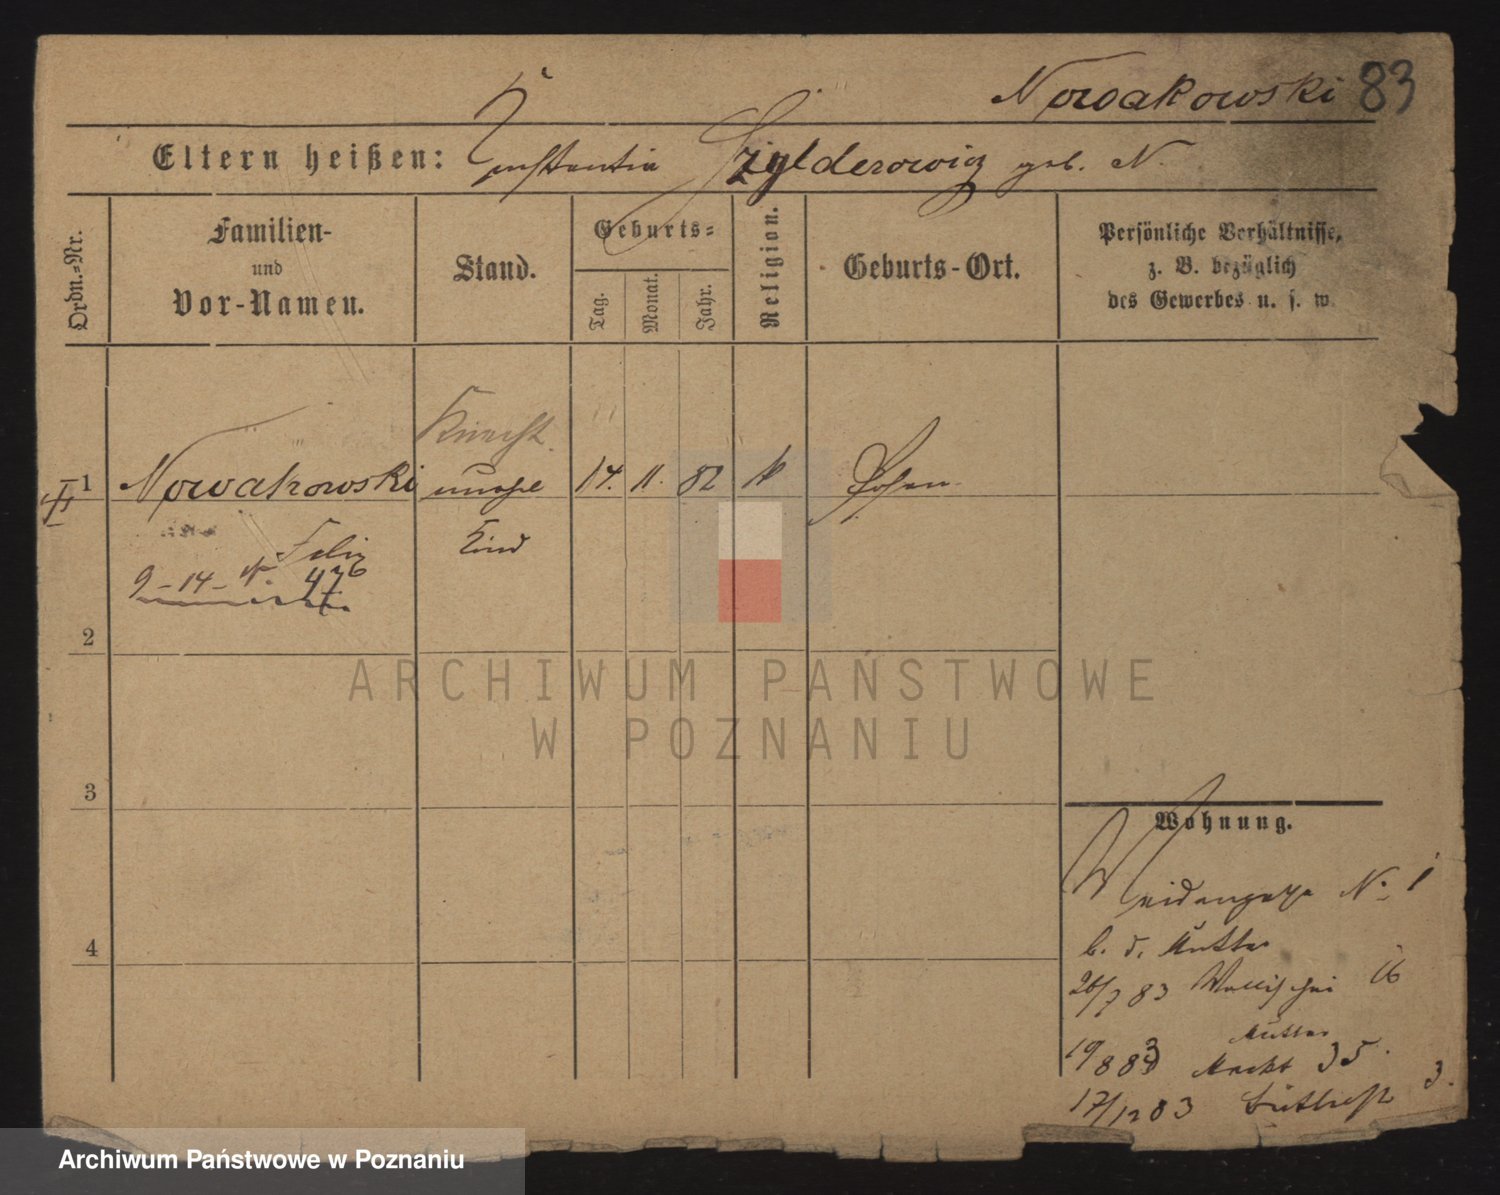 Nowakowski 83
Eltern heißen: Constantia Szylderowicz geb. N.
Ordn.-Nr.
Familien-
und
Vor-Namen.
Stand.
Geburts-
Tag.
Monat.
Jahr.
Religion.
Geburts-Ort.
Persönliche Verhältnisse,
z. B. bezüglich
des Gewerbes u. s. w.
Knecht
1 Nowakowski unehel 14. 11. 82 k Posen
Felix Kind
9-14- N. 476
2
3
4
Wohnung.
Weidengasse No 1
b. d. Mutter
26/7 83 Wallischei 16
Mutter
19 8 83 Markt 35.
17/12 83 Büttelstr 3.
ARCHIWUM PAŃSTWOWE
W POZNANIU
Archiwum Państwowe w Poznaniu